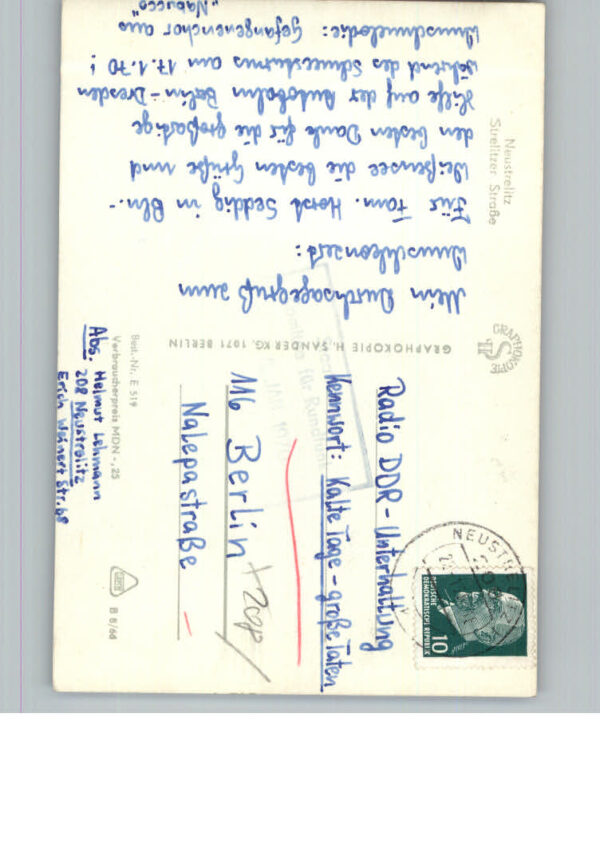 Neustrelitz
Strelitzer Straße
Mein Durchsagegruß zum
Wunschkonzert:
Für Fam. Horst Seddig in Bln.-
Weißensee die besten Grüße und
den besten Dank für die großartige
Hilfe auf der Autobahn Berlin-Dresden
während des Schneesturms am 17.1.70!
Wunschmelodie: Gefangenenchor aus
"Nabucco"
GRAPHOKOPIE H. SANDER KG, 1071 BERLIN
GRAPHOKOPIE
NEUSTRE
DEUTSCHE
DEMOKRATISCHE REPUBLIK
10
Radio DDR-Unterhaltung
Kennwort: Kalte Tage-große Taten
für Rundfunk
116 Berlin
+208
Nalepastraße
Best.-Nr. E 519
Verbraucherpreis MDN -,25
B 8/66
Abs. Helmut Lehmann
208 Neustrelitz
Erich Weinert Str. 68